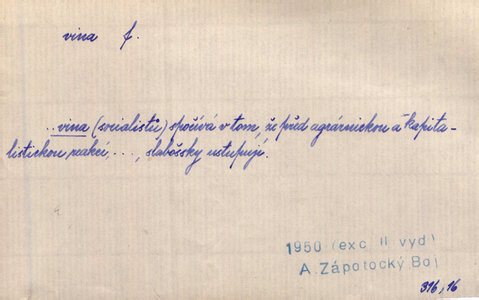 vina f.
..vina (socialistů) spočívá v tom, že před agrárnickou a kapita-
listickou reakcí, ..., slabošsky ustupují.
1950 (exc II vyd)
A. Zápotocký Boj
316,16